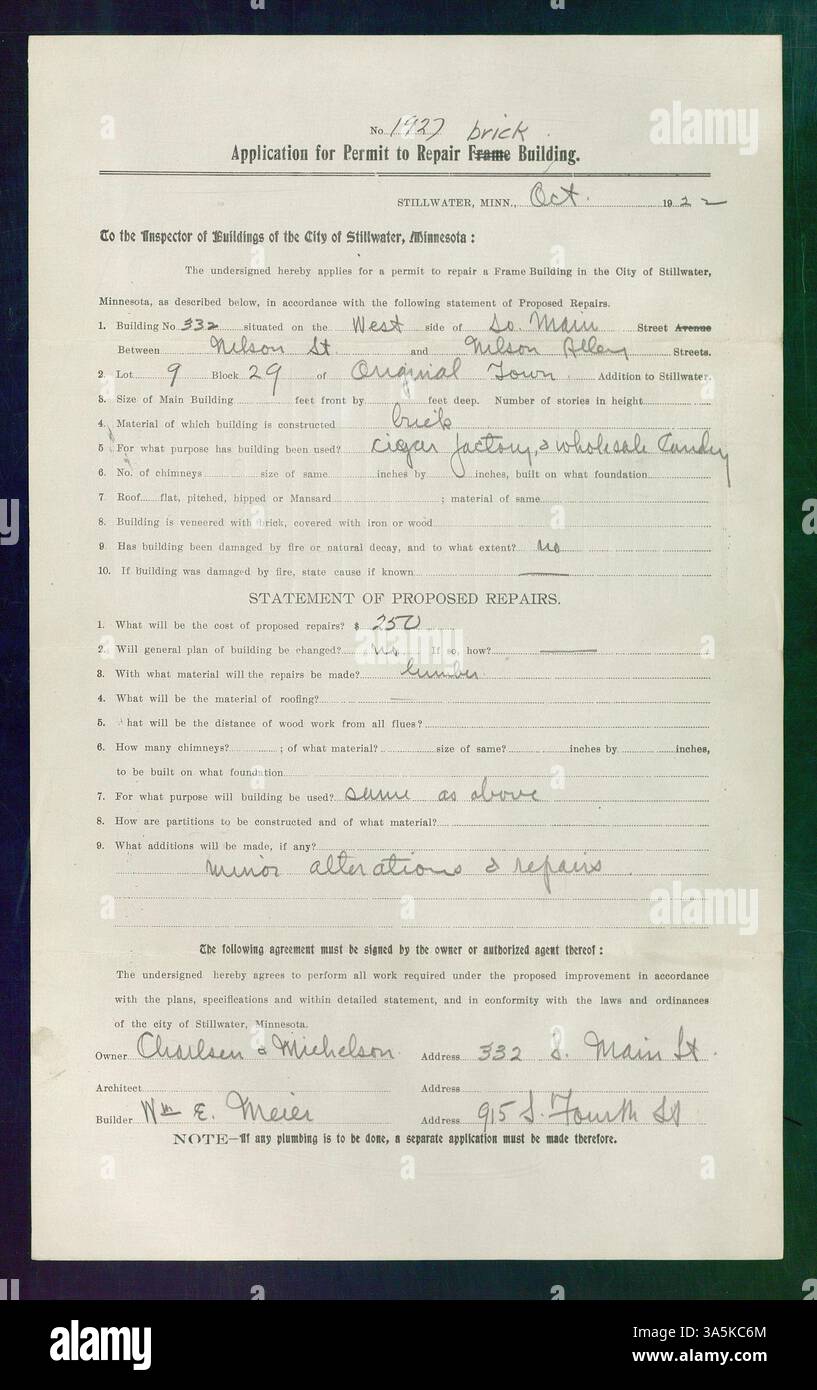 No. 1927 brick
Application for Permit to Repair Frame Building.
STILLWATER, MINN., Oct. 1922
To the Inspector of Buildings of the City of Stillwater, Minnesota :
The undersigned hereby applies for a permit to repair a Frame Building in the City of Stillwater,
Minnesota, as described below, in accordance with the following statement of Proposed Repairs.
1. Building No 332 situated on the West side of So. Main Street Avenue
Between Nelson St and Nelson Alley Streets.
2. Lot 9 Block 29 of Original Town Addition to Stillwater.
3. Size of Main Building feet front by feet deep. Number of stories in height
4. Material of which building is constructed brick
5 For what purpose has building been used? cigar factory, & wholesale Candy
6. No. of chimneys size of same inches by inches, built on what foundation
7. Roof flat, pitched, hipped or Mansard ; material of same
8. Building is veneered with brick, covered with iron or wood
9 Has building been damaged by fire or natural decay, and to what extent? no
10. If building was damaged by fire, state cause if known
STATEMENT OF PROPOSED REPAIRS.
1. What will be the cost of proposed repairs? $ 250
2. Will general plan of building be changed? no If so, how?
3. With what material will the repairs be made? lumber
4. What will be the material of roofing?
5. hat will be the distance of wood work from all flues?
6. How many chimneys? ; of what material? size of same? inches by inches,
to be built on what foundation
7. For what purpose will building be used? same as above
8. How are partitions to be constructed and of what material?
9. What additions will be made, if any?
minor alterations & repairs
The following agreement must be signed by the owner or authorized agent thereof :
The undersigned hereby agrees to perform all work required under the proposed improvement in accordance
with the plans, specifications and within detailed statement, and in conformity with the laws and ordinances
of the city of Stillwater, Minnesota.
Owner Charlsen & Michelson Address 332 S. Main St.
Architect Address
Builder Wm E. Meier Address 915 S. Fourth St
NOTE—If any plumbing is to be done, a separate application must be made therefore.
alamy
Image ID: 3A5KC6M
www.alamy.com